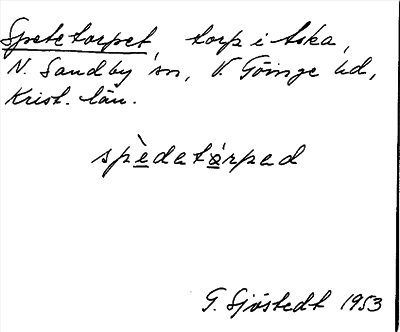 Spetetorpet, torp i Aska,
N. Sandby sn, V. Göinge hd,
Krist. län.
spèdetårpad
G. Sjöstedt 1953